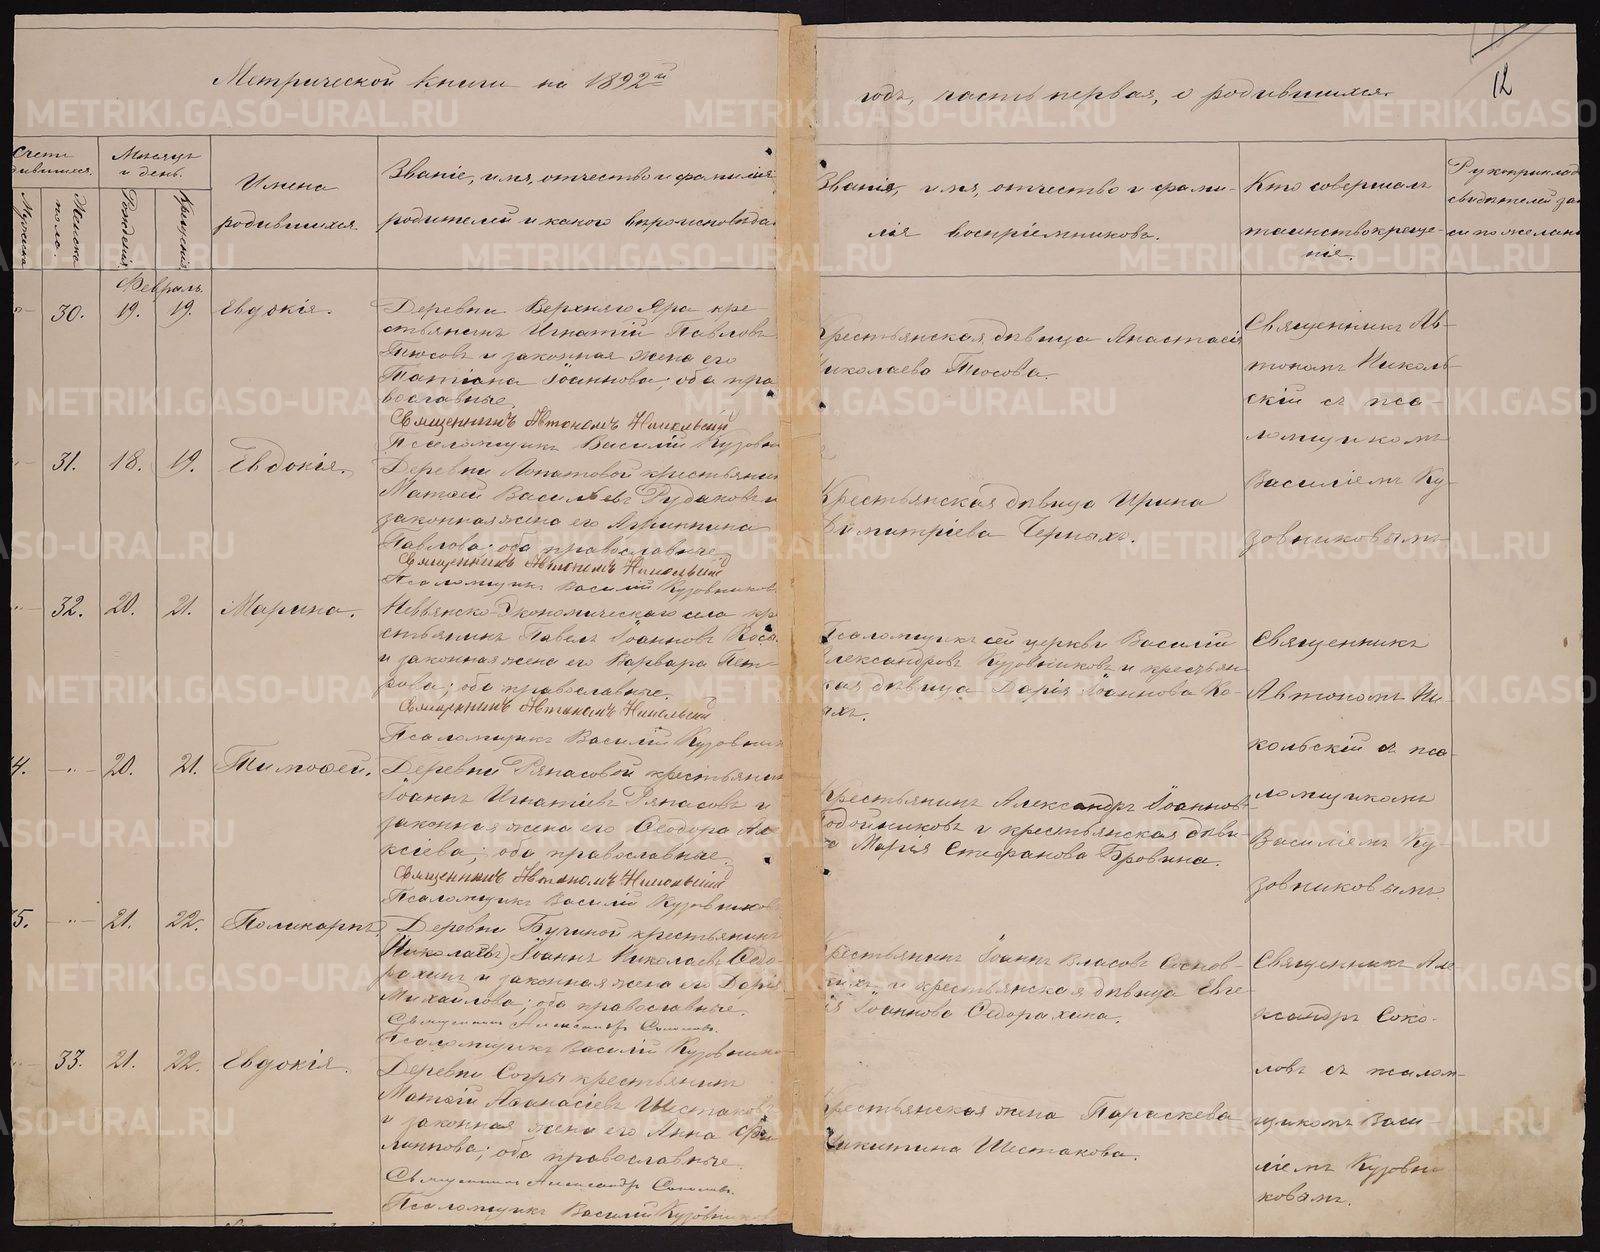 Метрической книги на 1892й
годъ, часть первая, о родившихся.
12
Счетъ
родившихся.
Мужска
Женска
пола.
Мѣсяцъ
и день.
Рожденія
Крещенія
Имена
родившихся.
Званіе, имя, отчество и фамилія
родителей и какого вѣроисповѣда
Званіе, имя, отчество и фами-
лія воспріемниковъ.
Кто совершалъ
таинство креще-
нія.
Рукоприклад
свидѣтелей за
си по желан
Февраль.
30. 19. 19. Евдокія.
Деревни Верхняго Яра кре-
стьянинъ Игнатій Павловъ
Тюсовъ и законная жена его
Татіана Іоаннова; оба пра
вославные.
Священникъ Автономъ Никольскій
Псаломщикъ Василій Кузовни
Крестьянская дѣвица Анастасія
Николаева Тюсова.
Священникъ Ав-
тономъ Николь-
скій съ пса-
ломщикомъ
Василіемъ Ку-
зовниковымъ
31. 18. 19. Евдокія.
Деревни Лопатовой крестьянин
Матѳей Васильевъ Рудаковъ и
законная жена его Агриппина
Павлова; оба православные.
Священникъ Автономъ Никольскій
Псаломщикъ Василій Кузовников
Крестьянская дѣвица Ирина
Димитріева Черныхъ.
32. 20. 21. Марина.
Невьянско-Экономическаго села кр
стьянинъ Павелъ Іоанновъ Коса
и законная жена его Варвара Пет-
рова; оба православные.
Священникъ Автономъ Никольскій
Псаломщикъ Василій Кузовник
Псаломщикъ сей церкви Василій
Александровъ Кузовниковъ и крестьян
кая дѣвица Дарія Іоаннова Ко-
ахъ.
Священникъ
Автономъ Ни-
кольскій съ пса-
ломщикомъ
Василіемъ Ку-
зовниковымъ
4. -"- 20. 21. Тимоѳей.
Деревни Ряпасовой крестьянин
Іоаннъ Игнатіевъ Ряпасовъ и
законная жена его Ѳеодора Але
ксіева; оба православные.
Священникъ Автономъ Никольскій
Псаломщикъ Василій Кузовников
Крестьянинъ Александръ Іоаннов
одойниковъ и крестьянская дѣви-
ца Марія Стефанова Бровина.
5. -"- 21. 22. Поликарпъ.
Деревни Бучиной крестьянинъ
(Николаевъ) Іоаннъ Николаевъ Ѳедо
рахинъ и законная жена его Дарія
Михайлова; оба православные.
Священникъ Александръ Соколовъ.
Псаломщикъ Василій Кузовнико
Крестьянинъ Іоаннъ Власовъ Соснов-
скихъ и крестьянская дѣвица Евге
ія Іоаннова Ѳедорахина.
Священникъ Але
ксандръ Соко-
ловъ съ псалом-
щикомъ Васи
ліемъ Кузовни
ковымъ.
33. 21. 22. Евдокія.
Деревни Согры крестьянинъ
Матѳій Аѳанасіевъ Шестаковъ
и законная жена его Анна Фи
липпова; оба православные.
Священникъ Александръ Соколовъ.
Псаломщикъ Василій Кузовников
Крестьянская жена Параскева
Никитина Шестакова.